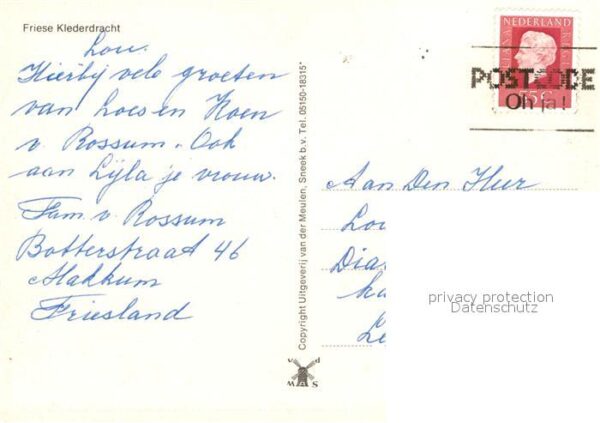 Friese Klederdracht
Lou.
Hierbij vele groeten
van Loes en Koen
v Rossum. Ook
aan Lijla je vrouw.
Fam. v Rossum
Botterstraat 46
Makkum
Friesland
Copyright Uitgeverij van der Meulen, Sneek b.v. Tel. 05150-18315*
v d
M A S
NEDERLAND
POSTCODE
Oh ja!
Aan Den Heer
Lou
privacy protection
Datenschutz